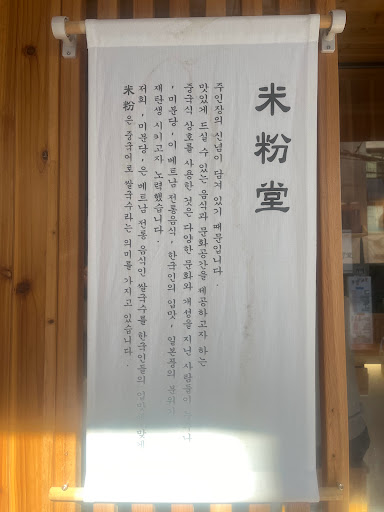 米粉堂
米粉은 중국어로 쌀국수라는 의미를 가지고 있습니다.
저희, 미분당, 은 베트남 전통 음식인 쌀국수를 한국인들의
재탄생 시키고자 노력했습니다.
, 미분당, 이 베트남 전통음식, 한국인의 입맛, 일본풍의
중국식 상호를 사용한 것은 다양한 문화와 개성을 지닌 사람들이
맛있게 드실 수 있는 음식과 문화공간을 제공하고자 하는
주인장의 신념이 담겨 있기 때문입니다.